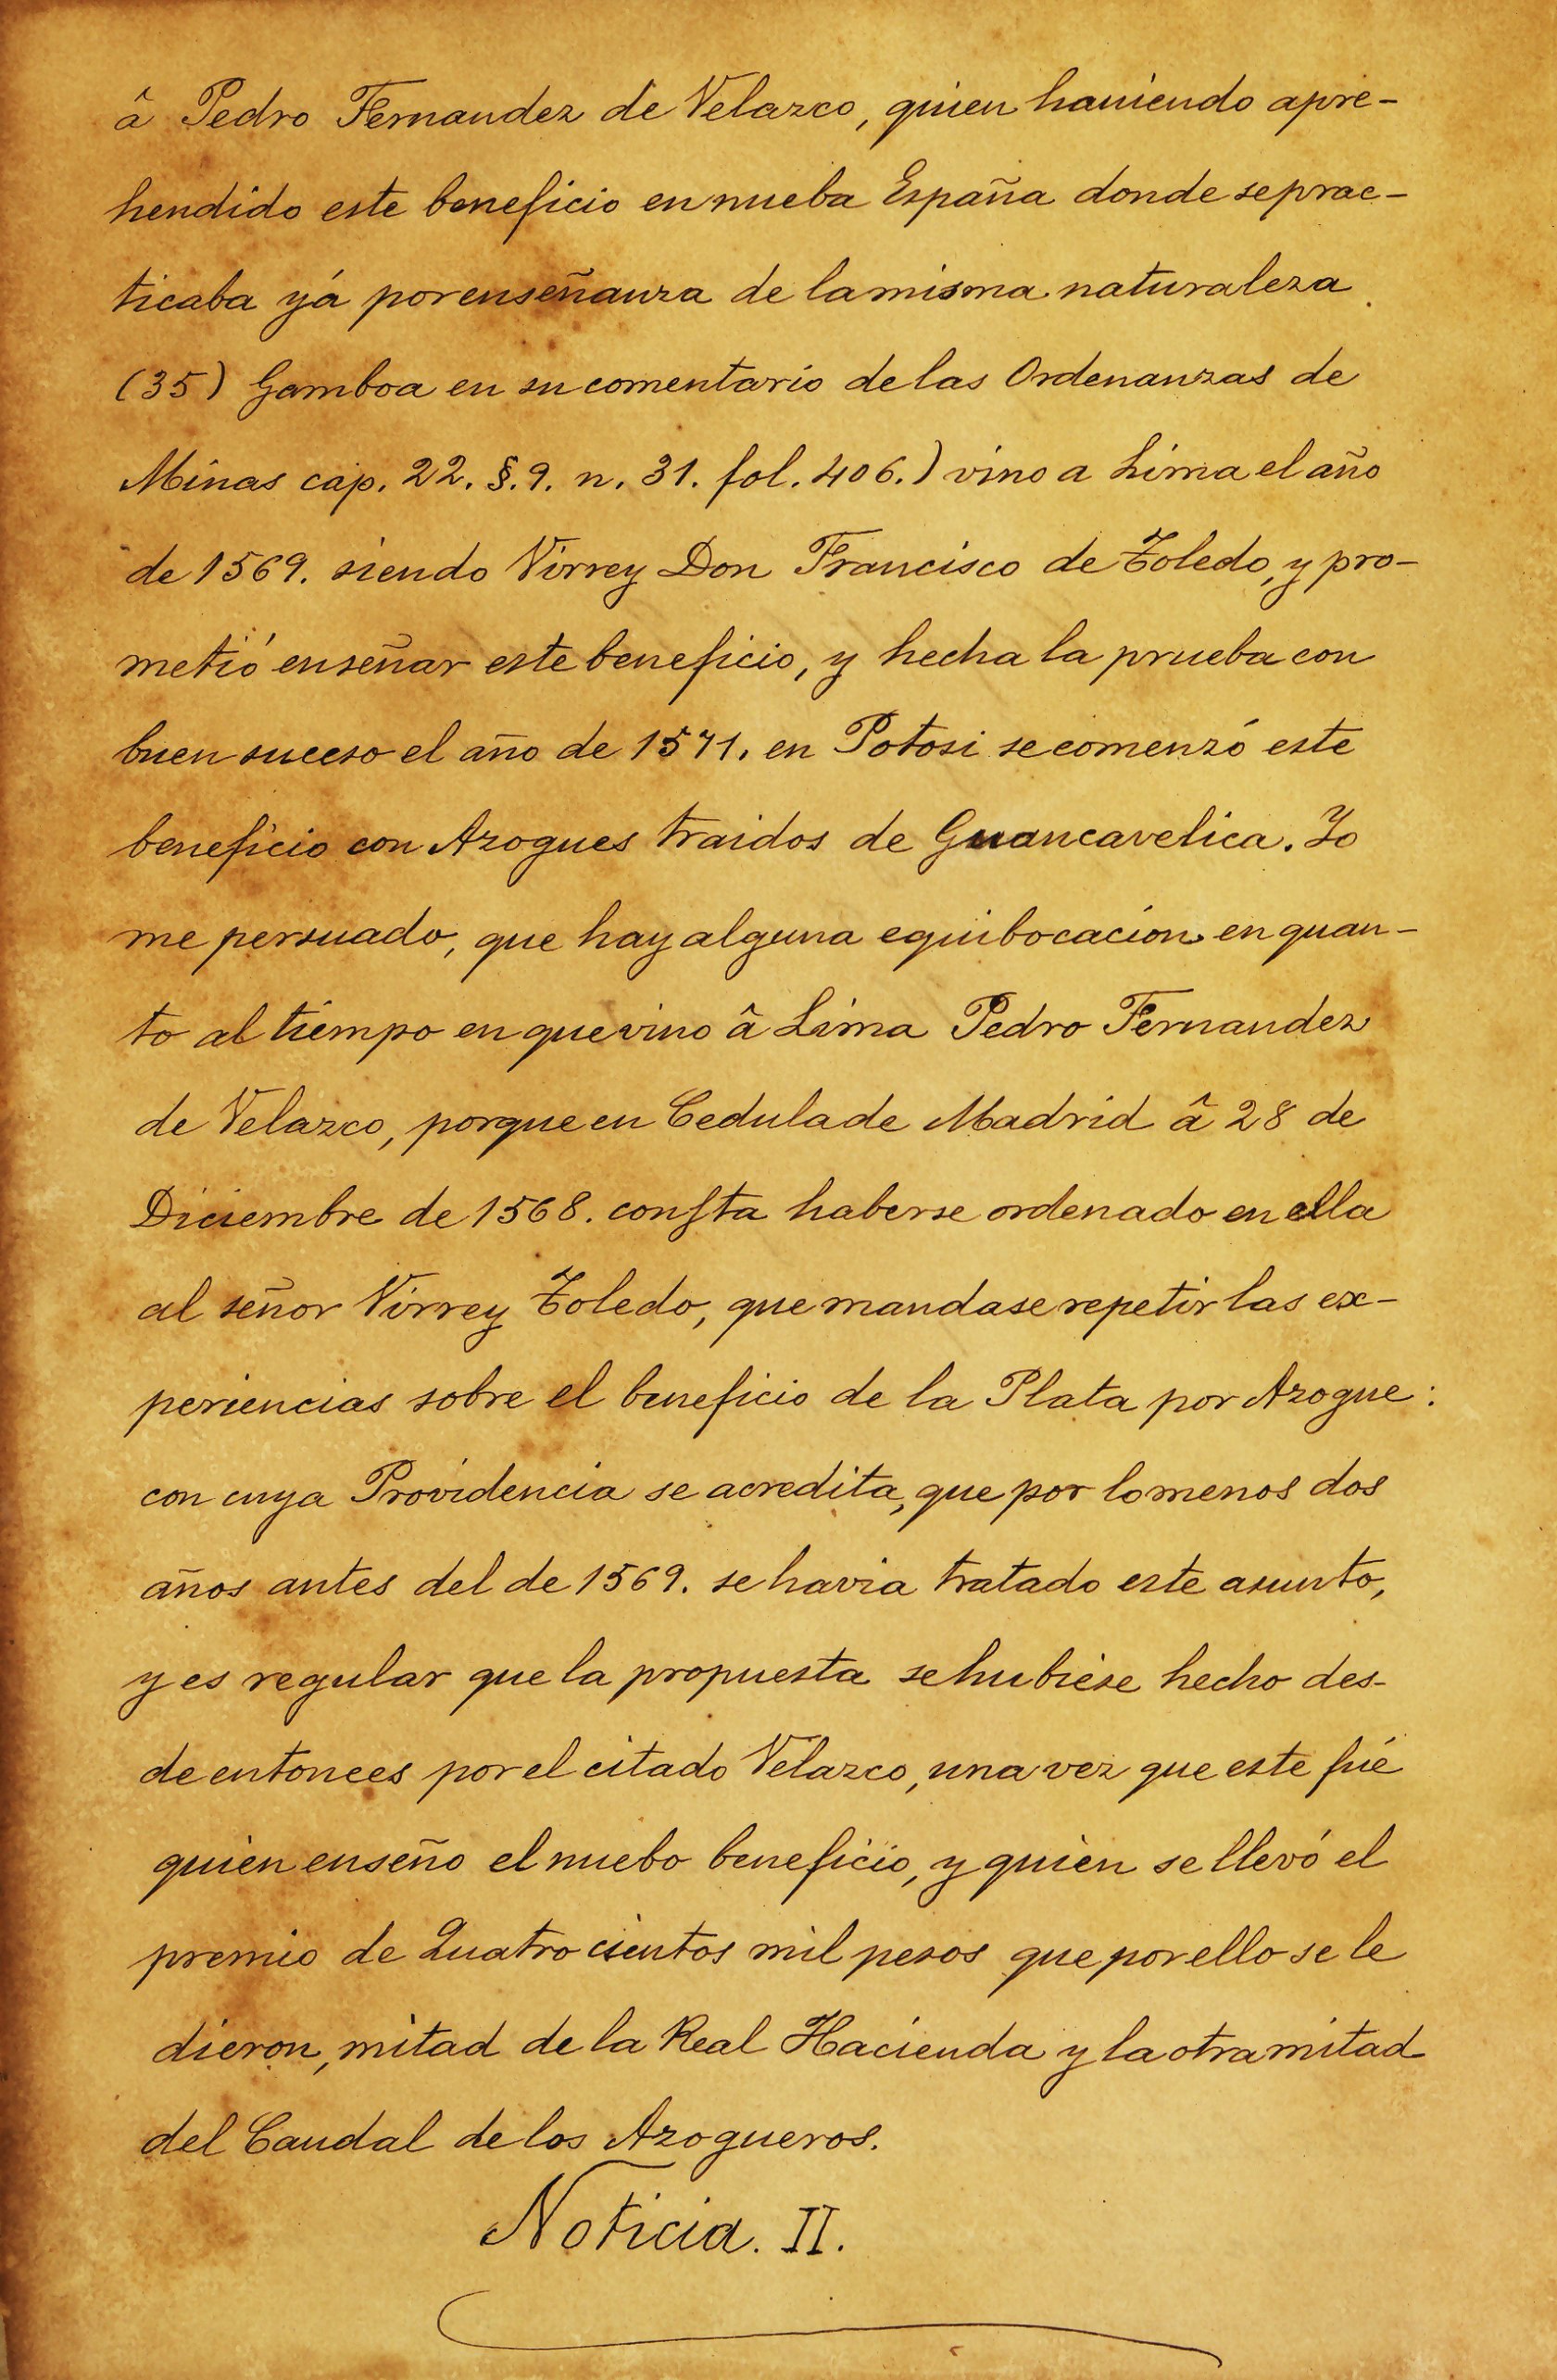 â Pedro Fernandez de Velazco, quien haviendo apre-
hendido este beneficio en nueba España donde seprac-
ticaba yá porenseñanza de lamisma naturaleza
(35) Gamboa en su comentario de las Ordenanzas de
Minas cap. 22. §. 9. n. 31. fol. 406.) vino a Lima el año
de 1569. siendo Virrey Don Francisco de Toledo, y pro-
metió enseñar este beneficio, y hecha la prueba con
buen suceso el año de 1571. en Potosi se comenzó este
beneficio con Azogues traidos de Guancavelica. Yo
me persuado, que hay alguna equibocacion en quan-
to al tiempo en que vino â Lima Pedro Fernandez
de Velazco, porque en Cedula de Madrid â 28 de
Diciembre de 1568. conſta haberse ordenado en ella
al señor Virrey Toledo, que mandase repetir las ex-
periencias sobre el beneficio de la Plata por Azogue:
con cuya Providencia se acredita, que por lo menos dos
años antes del de 1569. se havia tratado este asunto,
y es regular que la propuesta se hubiese hecho des-
de entonces por el citado Velazco, una vez que este fué
quien enseño el nuebo beneficio, y quien se llevó el
premio de Quatro cientos mil pesos que por ello se le
dieron, mitad de la Real Hacienda y la otra mitad
del Caudal de los Azogueros.
Noticia. II.